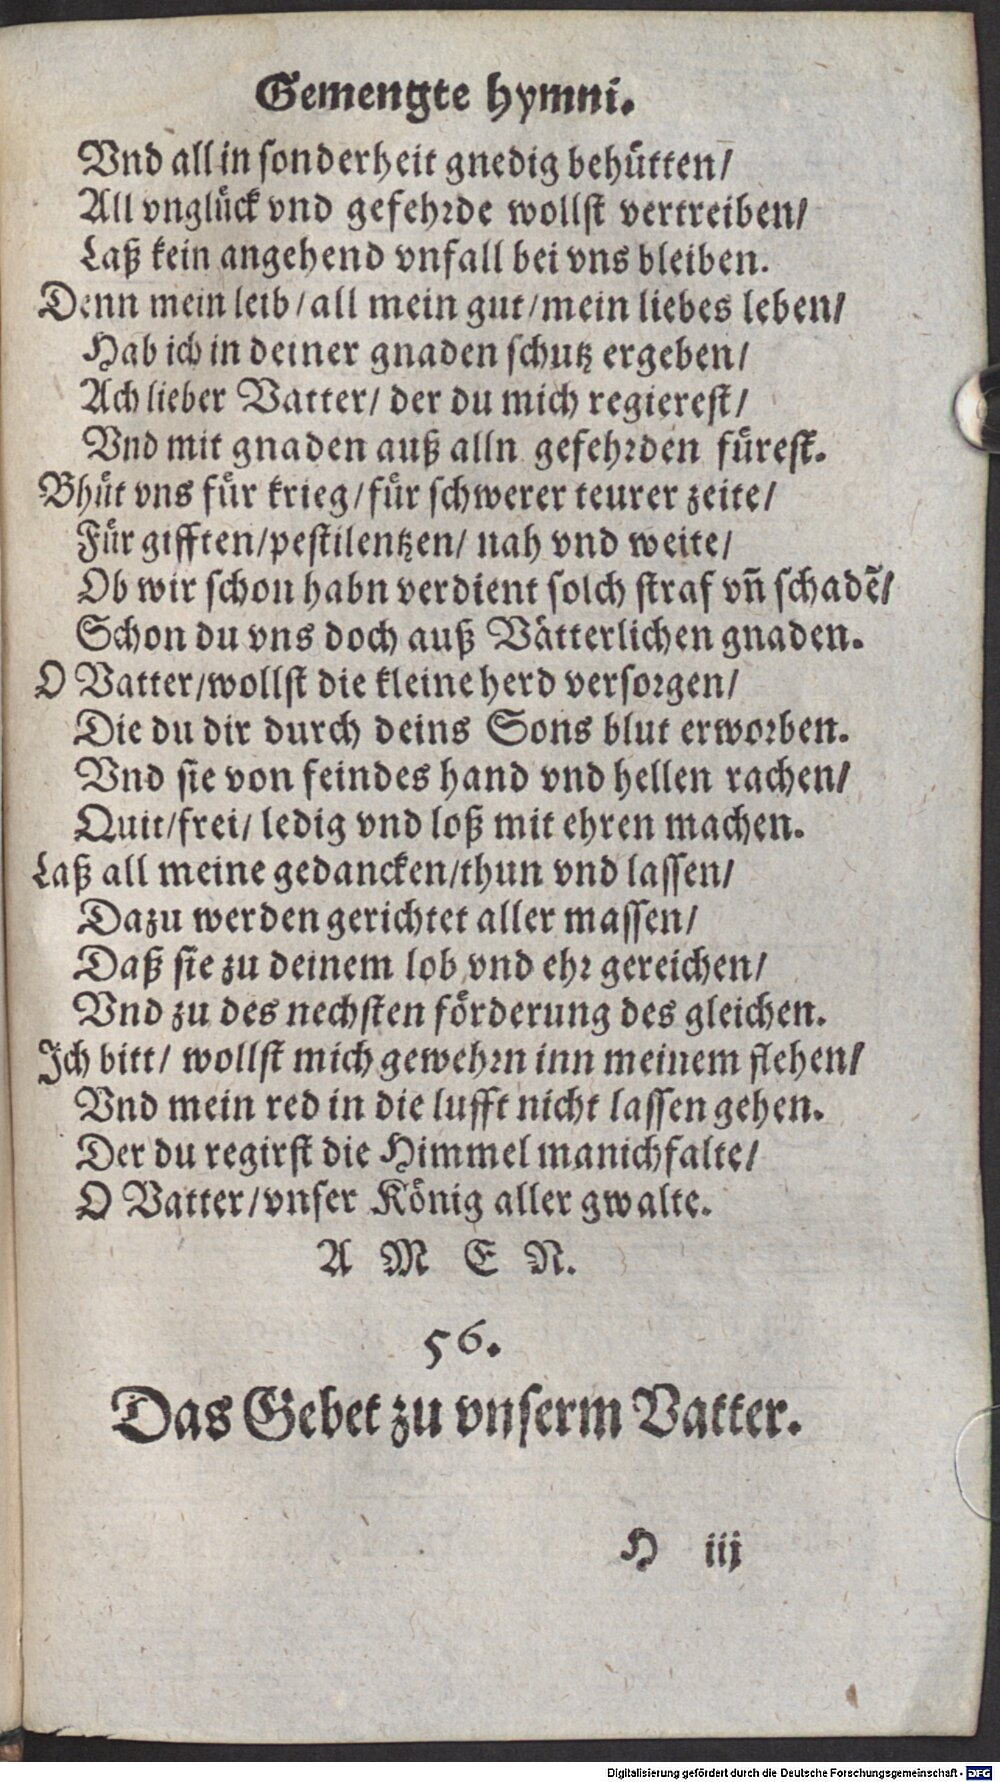 Gemengte hymni.
Vnd all in sonderheit gnedig behütten/
All vnglück vnd gefehrde wollst vertreiben/
Laß kein angehend vnfall bei vns bleiben.
Denn mein leib/all mein gut/mein liebes leben/
Hab ich in deiner gnaden schutz ergeben/
Ach lieber Vatter/ der du mich regierest/
Vnd mit gnaden auß alln gefehrden fürest.
Bhüt vns für krieg/für schwerer teurer zeite/
Für gifften/pestilentzen/ nah vnd weite/
Ob wir schon habn verdient solch straf vñ schadẽ/
Schon du vns doch auß Vätterlichen gnaden.
O Vatter/wollst die kleine herd versorgen/
Die du dir durch deins Sons blut erworben.
Vnd sie von feindes hand vnd hellen rachen/
Quit/frei/ ledig vnd loß mit ehren machen.
Laß all meine gedancken/thun vnd lassen/
Dazu werden gerichtet aller massen/
Daß sie zu deinem lob vnd ehr gereichen/
Vnd zu des nechsten förderung des gleichen.
Ich bitt/ wollst mich gewehrn inn meinem flehen/
Vnd mein red in die lufft nicht lassen gehen.
Der du regirst die Himmel manichfalte/
O Vatter/vnser König aller gwalte.
A M E N.
56.
Das Gebet zu vnserm Vatter.
H iij
Digitalisierung gefördert durch die Deutsche Forschungsgemeinschaft - DFG